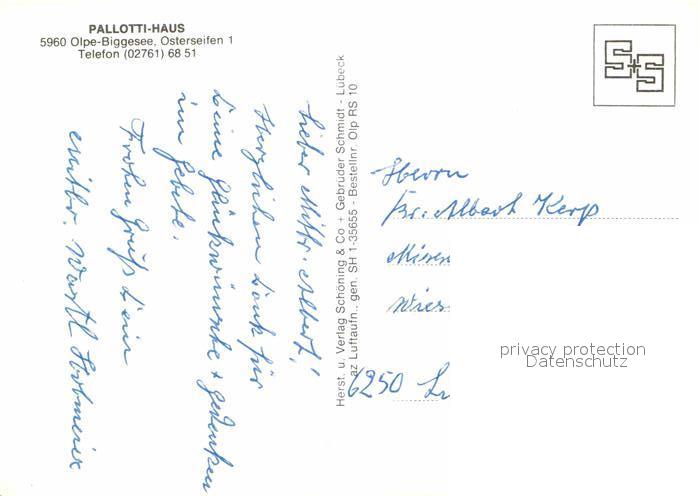 PALLOTTI-HAUS
5960 Olpe-Biggesee, Osterseifen 1
Telefon (02761) 68 51
S+S
Lieber Mitbr. Albert!
Herzlichen Dank für
Deine Glückwünsche + Gedenken
im Gebete.
Frohen Gruß Dein
Mitbr.
Herst. u. Verlag Schöning & Co + Gebrüder Schmidt - Lübeck
az Luftaufn., gen. SH 1-35655 - Bestellnr. Olp RS 10
Herrn
Br. Albert Kerp
Missn
Wies
6250 Li
privacy protection
Datenschutz